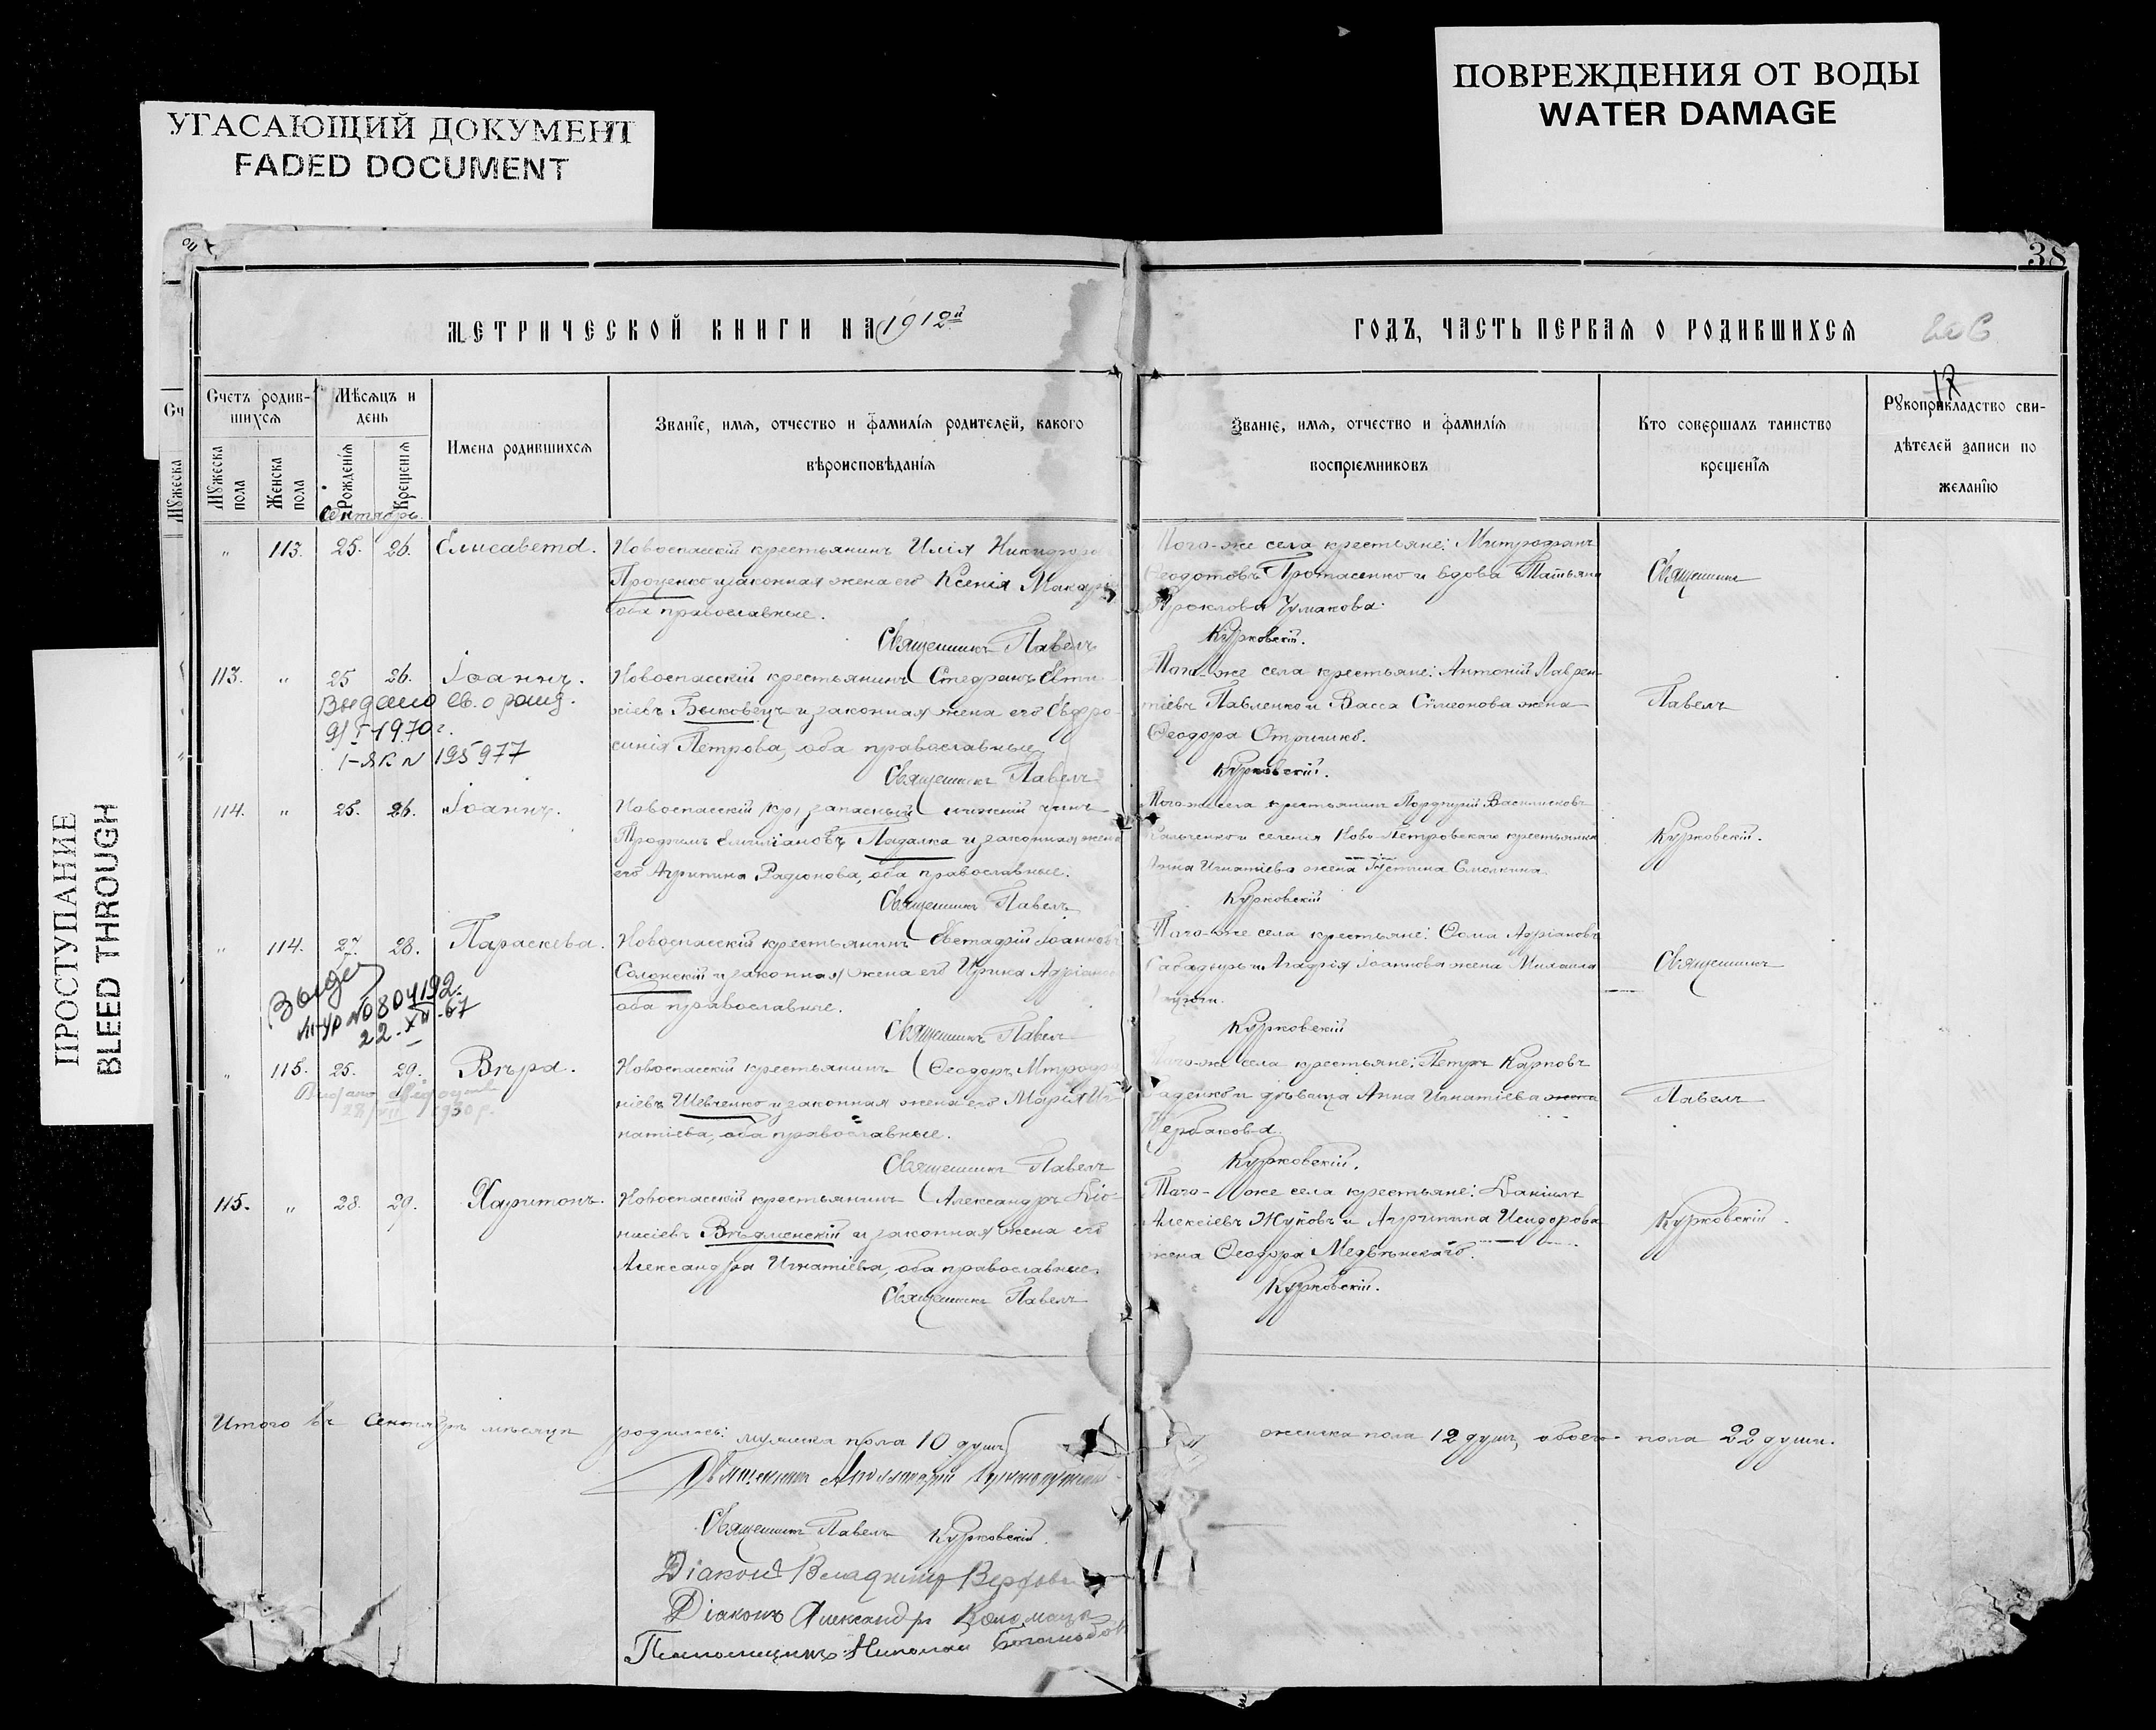 УГАСАЮЩИЙ ДОКУМЕНТ
FADED DOCUMENT
ПОВРЕЖДЕНИЯ ОТ ВОДЫ
WATER DAMAGE
ПРОСТУПАНИЕ
BLEED THROUGH
38
МЕТРИЧЕСКОЙ КНИГИ НА 1912й
ГОДЪ, ЧАСТЬ ПЕРВАЯ О РОДИВШИХСЯ
Сч
Мужеска
Счетъ родив-
шихся
Мужеска пола
Женска пола
Мѣсяцъ и
день
Рожденія
Крещенія
Имена родившихся
Званіе, имя, отчество и фамилія родителей, какого
вѣроисповѣданія
Званіе, имя, отчество и фамилія
воспріемниковъ
Кто совершалъ таинство
крещенія
Рукоприкладство сви-
дѣтелей записи по
желанію
Сентябрь.
" 113. 25. 26. Елисавета.
Новоспасскій крестьянинъ Илія Никифоро
Проценко и законная жена его Ксенія Макарі
оба православные.
Священникъ Павелъ
Того-же села крестьяне: Митрофанъ
Ѳеодотовъ Протасенко и вдова Татьяна
Проклова Чумакова.
Курковскій.
Священникъ
113. " 25 26. Іоаннъ.
Выдано св. о рожд.
9/I-1970г.
I-ЯК N 195977
Новоспасскій крестьянинъ Стефанъ Евти
хіевъ Быковецъ и законная жена его Евфро
синія Петрова, оба православные.
Священникъ Павелъ
Того-же села крестьяне: Антоній Лаврен
тіевъ Павленко и Васса Симеонова жена
Ѳеодора Отришко.
Курковскій.
Павелъ
114. " 25. 26. Іоаннъ.
Новоспасскій кр. запасный нижній чинъ
Трофимъ Емиліановъ Ладалка и законная жена
его Агрипина Радіонова, оба православные.
Священникъ Павелъ
Того же села крестьянинъ Порфирій Василисковъ
Гальченко и селенія Ново-Петровскаго крестьянка
Анна Игнатіева жена Іустина Смолкина
Курковскій
Курковскій.
" 114. 27. 28. Параскева.
№ 0804192
22-XII-67
Новоспасскій крестьянинъ Евстафій Іоанновъ
Солонскій и законная жена его Ирина Адріано
оба православные.
Священникъ Павелъ
Того-же села крестьяне: Ѳома Адріановъ
Сабадырь и Агафія Іоаннова жена Михаила
Курковскій
Священникъ
" 115. 25. 29. Вѣра.
Новоспасскій крестьянинъ Ѳеодоръ Мтрофа
ніевъ Шевченко и законная жена его Марія Иг
натіева, оба православные.
Священникъ Павелъ
Того-же села крестьяне: Петръ Карповъ
Гаденко и дѣвица Анна Игнатіева жена
Щербакова.
Курковскій.
Павелъ
115. " 28. 29. Харитонъ.
Новоспасскій крестьянинъ Александръ Діо-
нисіевъ Вѣяменскій и законная жена его
Александра Игнатіева, оба православные.
Священникъ Павелъ
Того-же села крестьяне: Даніилъ
Алексіевъ Жуковъ и Агрипина Исидорова
жена Ѳеодора Медвѣнскаго.
Курковскій.
Курковскій
Итого въ Сентябрѣ мѣсяцѣ родилось: мужска пола 10 душъ,
женска пола 12 душъ, обоего пола 22 души.
Священникъ
Священникъ Павелъ Курковскій.
Діаконъ Владиміръ
Діаконъ Александръ Коломацкій
Псаломщикъ Николай